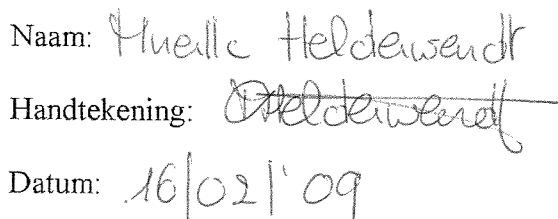 Naam: Helderwendt
Handtekening: Helderwendt
Datum: 16/02/'09